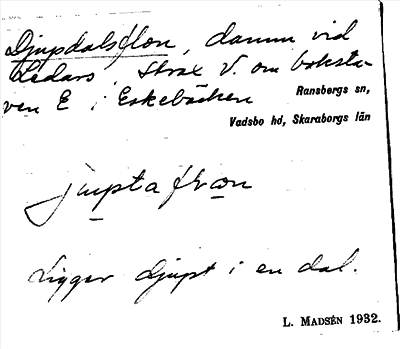 Djupdalsflon, damm vid
Ledars, strax V. om boksta-
ven E i Eskebäcken
Ransbergs sn,
Vadsbo hd, Skaraborgs län
juptaflon
Ligger djupt i en dal.
L. MADSÉN 1932.